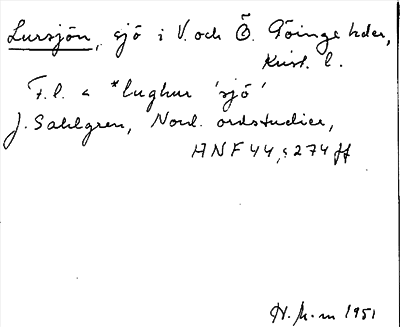 Lursjön, sjö i V. och Ö. Göinge hder,
Krist. l.
F.l. < *lughur 'sjö'
J. Sahlgren, Nord. ordstudier,
ANF 44, s 274 ff
1951